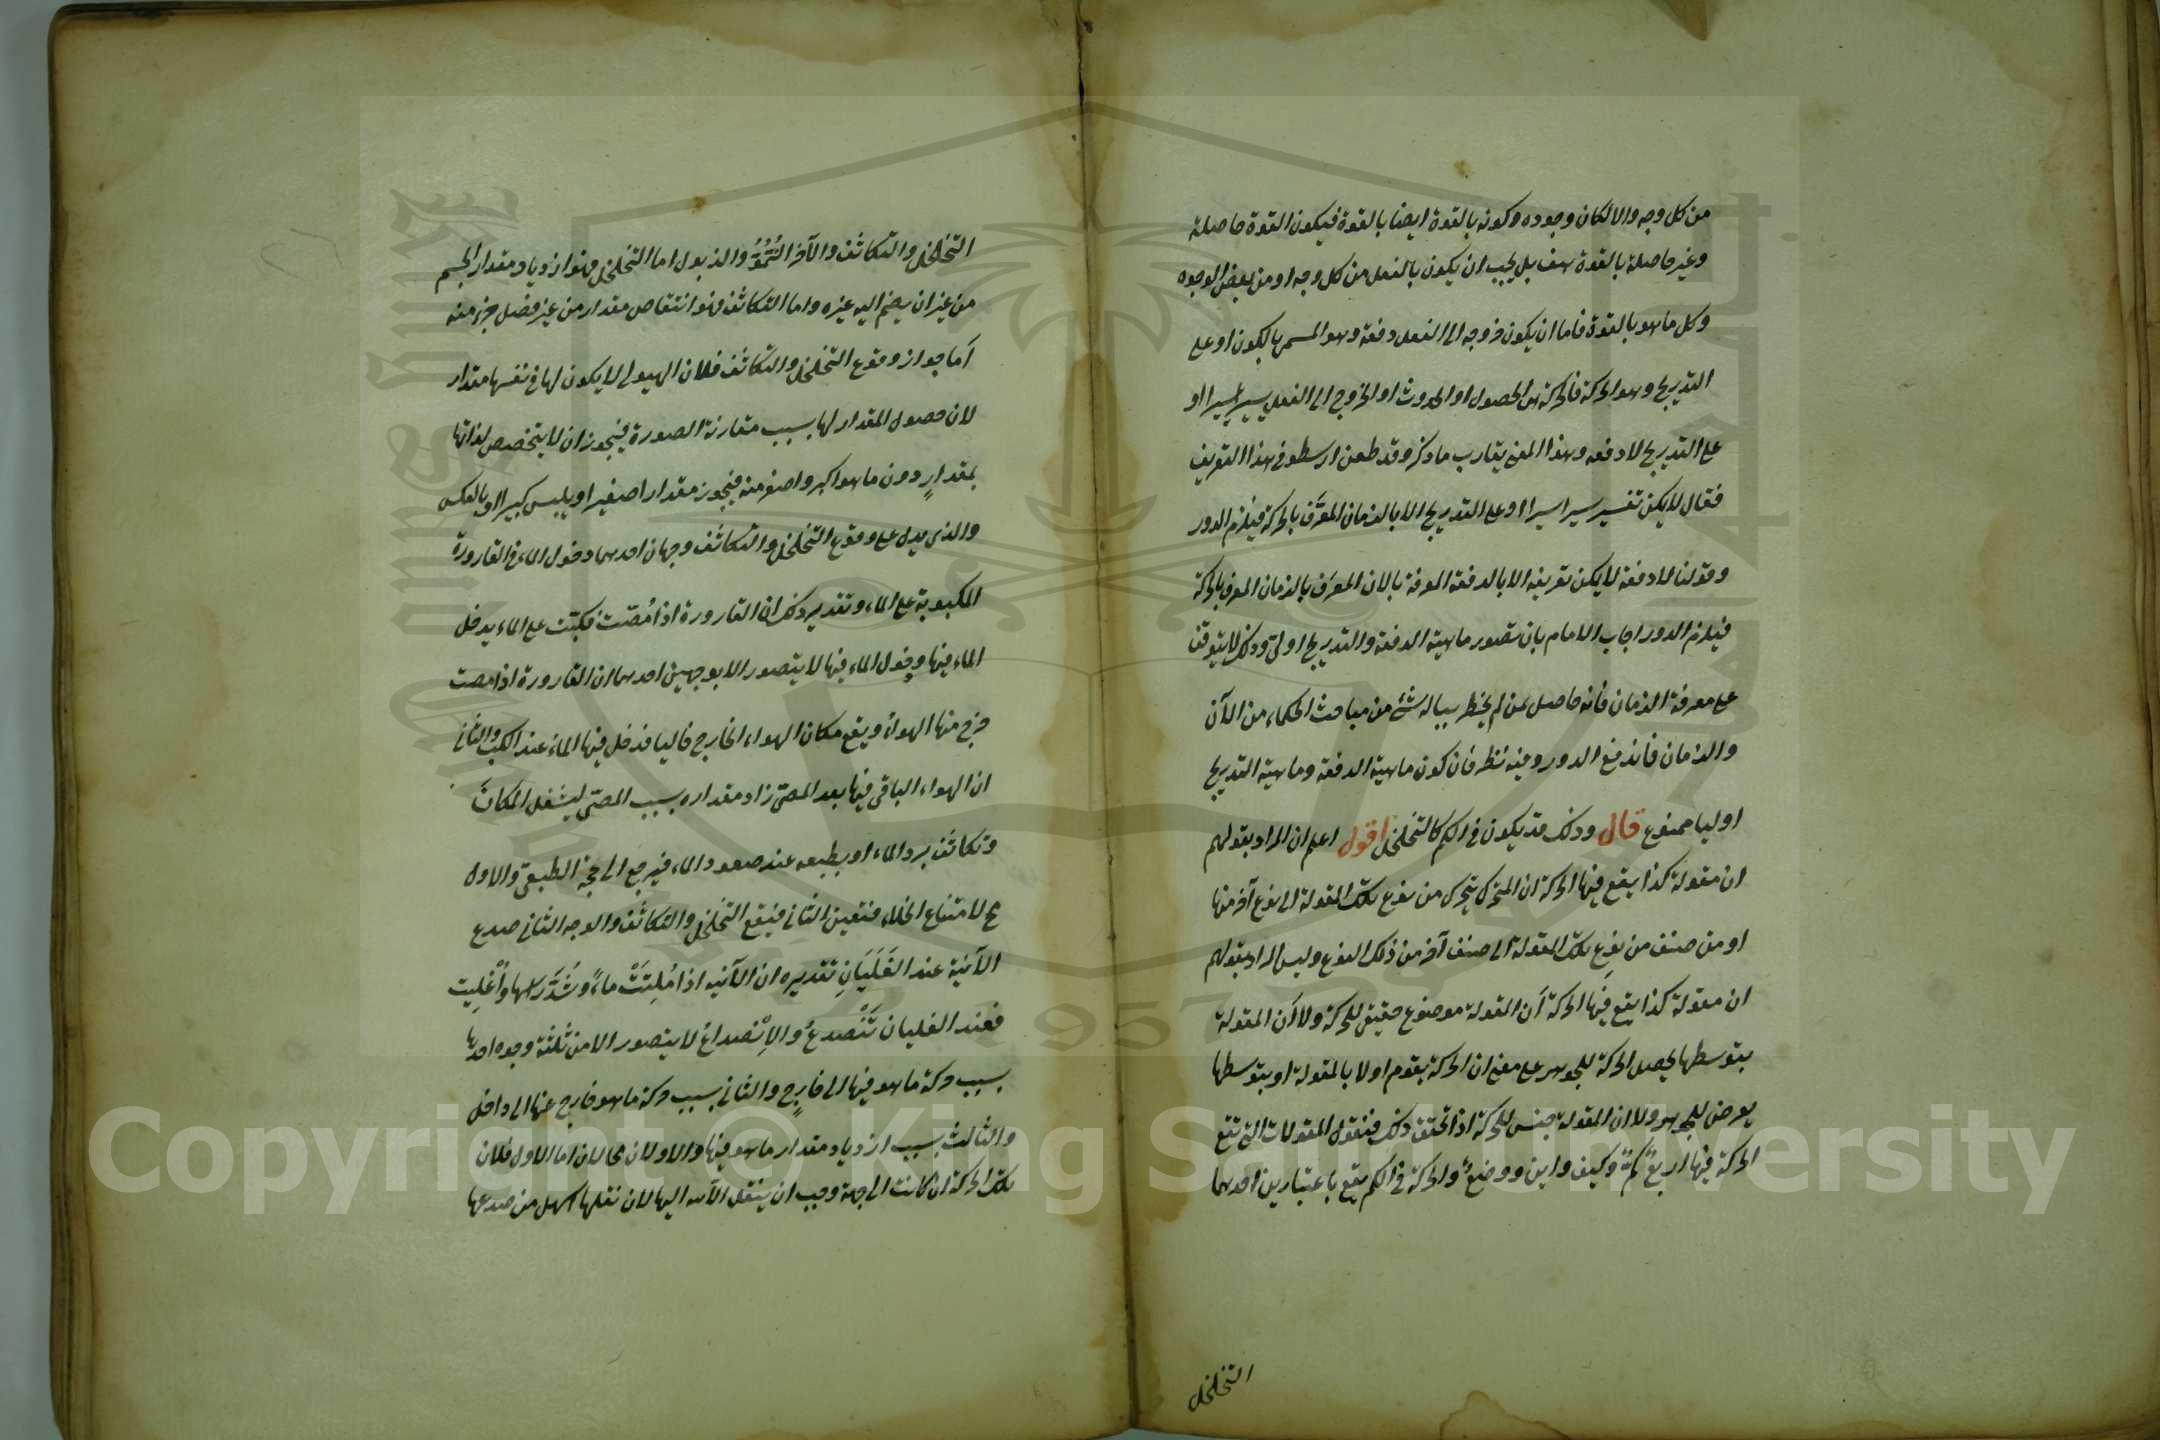 من كل وجه والا لكان وجوده وكونه بالقوة ايضا بالقوة فيكون القوة حاصلة
وغير حاصلة بالقوة هف بل يجب ان يكون بالفعل من كل وجه او من بعض الوجوه
وكل ما هو بالقوة فاما ان يكون خروجه الى الفعل دفعة وهو المسمى بالكون او على
التدريج وهو الحركة فالحركة هى الحصول او الحدوث او الخروج الى الفعل يسيرا يسيرا او
على التدريج لا دفعه وهذا المعنى يقارب ما ذكر وقد طعن ارسطو فى هذا التعريف
فقال لا يمكن تفسير يسيرا يسيرا او على التدريج الا بالزمان المعرَّف بالحركة فيلزم الدور
وقولنا لا دفعة لا يمكن تعريفه الا بالدفعة المعرفة بالان المعرَّف بالزمان المعرف بالحركة
فيلزم الدور اجاب الامام بان تصور ماهية الدفعة والتدريج اولىّ وذلك لا يتوقف
على معرفة الزمان فانه حاصل لمن لم يخطر بباله شئ من مباحث الحكماء من الآن
والزمان فاندفع الدور وفيه نظر فان كون ماهية الدفعة وماهية التدريج
اوليا ممنوع قال وذلك قد يكون فى الكم كالتخلخل اقول اعلم ان المراد بقولهم
ان مقولة كذا يقع فيها الحركة ان المتحرك يتحرك من نوع تلك المقولة الى نوع آخر منها
او من صنف من نوع تلك المقولة الى صنف آخر من ذلك النوع وليس المراد بقولهم
ان مقولة كذا يقع فيها الحركة أن المقولة موضوع حقيقى للحركة ولا أن المقولة
بتوسطها يحصل الحركة للجوهر على معنى ان الحركة يقوم اولا بالمقولة او بتوسطها
يعرض للجوهر ولا ان المقولة جنس للحركة اذا تحقق ذلك فنقول المقولات التى تقع
الحركة فيها اربعٌ كمٌّ وكيف واين ووضعٌ والحركة فى الكم يقع باعتبارين احدهما
التخلخل
التخلخل والتكاثف والآخر النُّمُوُّ والذبول اما التخلخل فهو ازدياد مقدار الجسم
من غير ان يضم اليه غيره واما التكاثف فهو انتقاص مقدار من غير فصل جزء منه
أما جواز وقوع التخلخل والتكاثف فلان الهيولى لا يكون لها فى نفسها مقدار
لان حصول المقدار لها بسبب مقارنة الصورة فيجوز ان لا يتخصص لذاتها
بمقدارٍ دون ما هو اكبر واصغر منه فيجوز مقدارا صغيرا ويلبس كبيرا او بالعكس
والذى يدل على وقوع التخلخل والتكاثف وجهان احدهما دخول الماء فى القارورة
المكبوبة على الماء وتقدير ذلك ان القارورة اذا مُصّت فكبّت على الماء يدخل
الماء فيها ودخول الماء فيها لا يتصور الا بوجهين احدهما ان القارورة اذا مصت
خرج منها الهواء ويبقى مكان الهواء الخارج خاليا فدخل فيها الماء عند الكب والثانى
ان الهواء الباقى فيها بعد المصّ زاد مقداره بسبب المصّ ليشغل المكان
وتكاثف ببرد الماء او بطبعه عند صعود الماء فيرجع الى حجمه الطبيعىّ والاول
مح لامتناع الخلاء فتعين الثانى فيقع التخلخل والتكاثف والوجه الثانى صدع
الآنية عند الغَلَيَانِ تقديره ان الآنيه اذا مُلِئَتْ ماءً وشُدَّ رأسها وأُغْلِيت
فعند الغليان تَنْصدعُ والاِنْصداعُ لا يتصور الا من ثلثة وجوه احدها
بسبب حركة ما هو فيها الى خارجٍ والثانى بسبب حركة ما هو خارج عنها الى داخل
والثالث بسبب ازدياد مقدار ما هو فيها والاولان محالان اما الاول فلان
تلك الحركة ان كانت الى جهة وجب ان ينقل الآنيه اليها لان نقلها اسهل من صدعها
Copyright © King Saud University